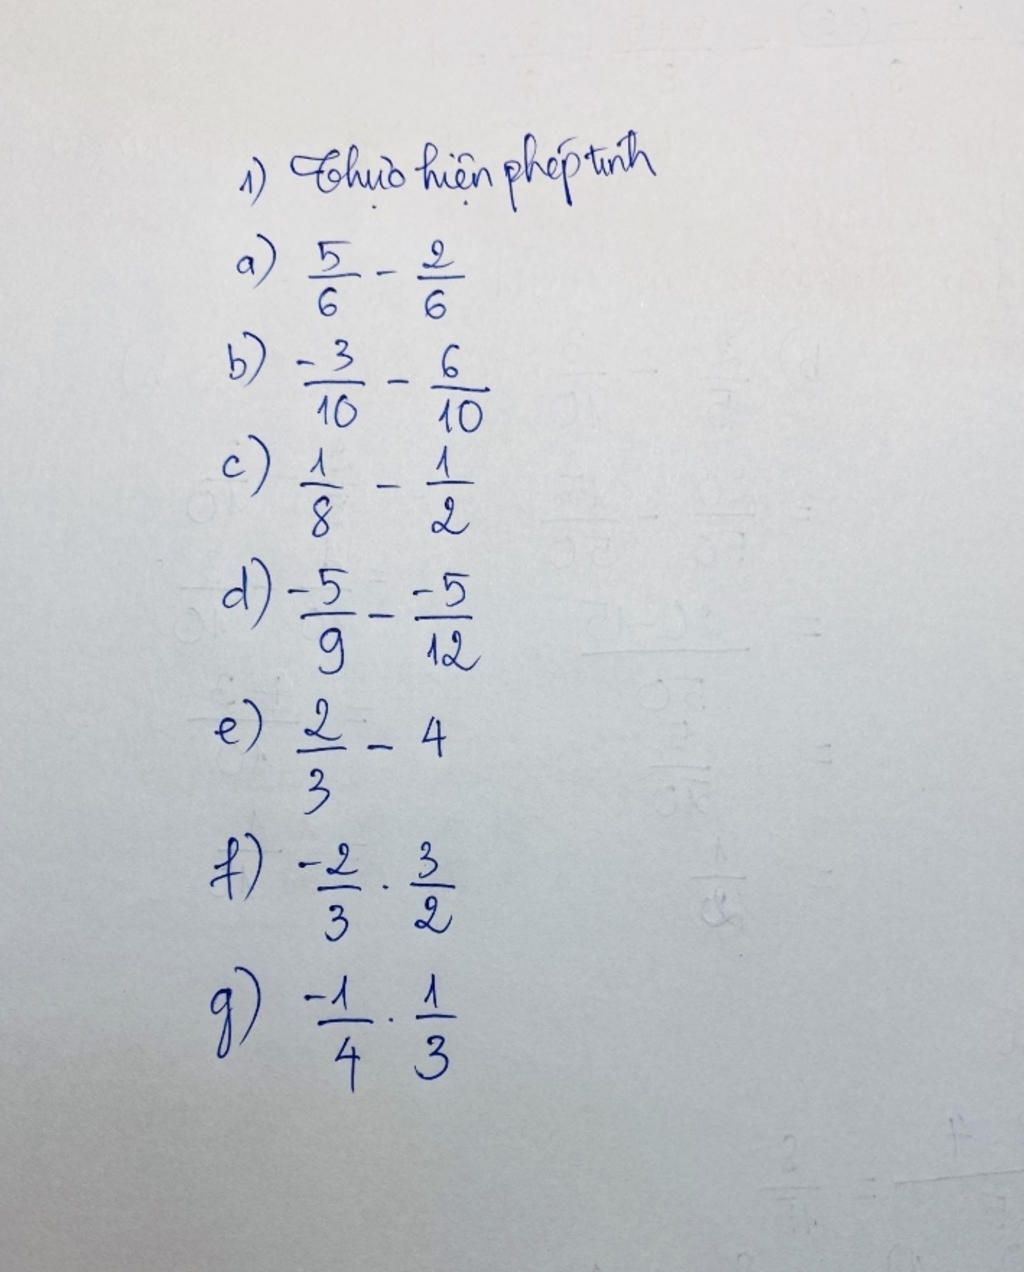 1) Thực hiện phép tính
a) 5/6 - 2/6
b) -3/10 - 6/10
c) 1/8 - 1/2
d) -5/9 - -5/12
e) 2/3 - 4
f) -2/3 . 3/2
g) -1/4 . 1/3